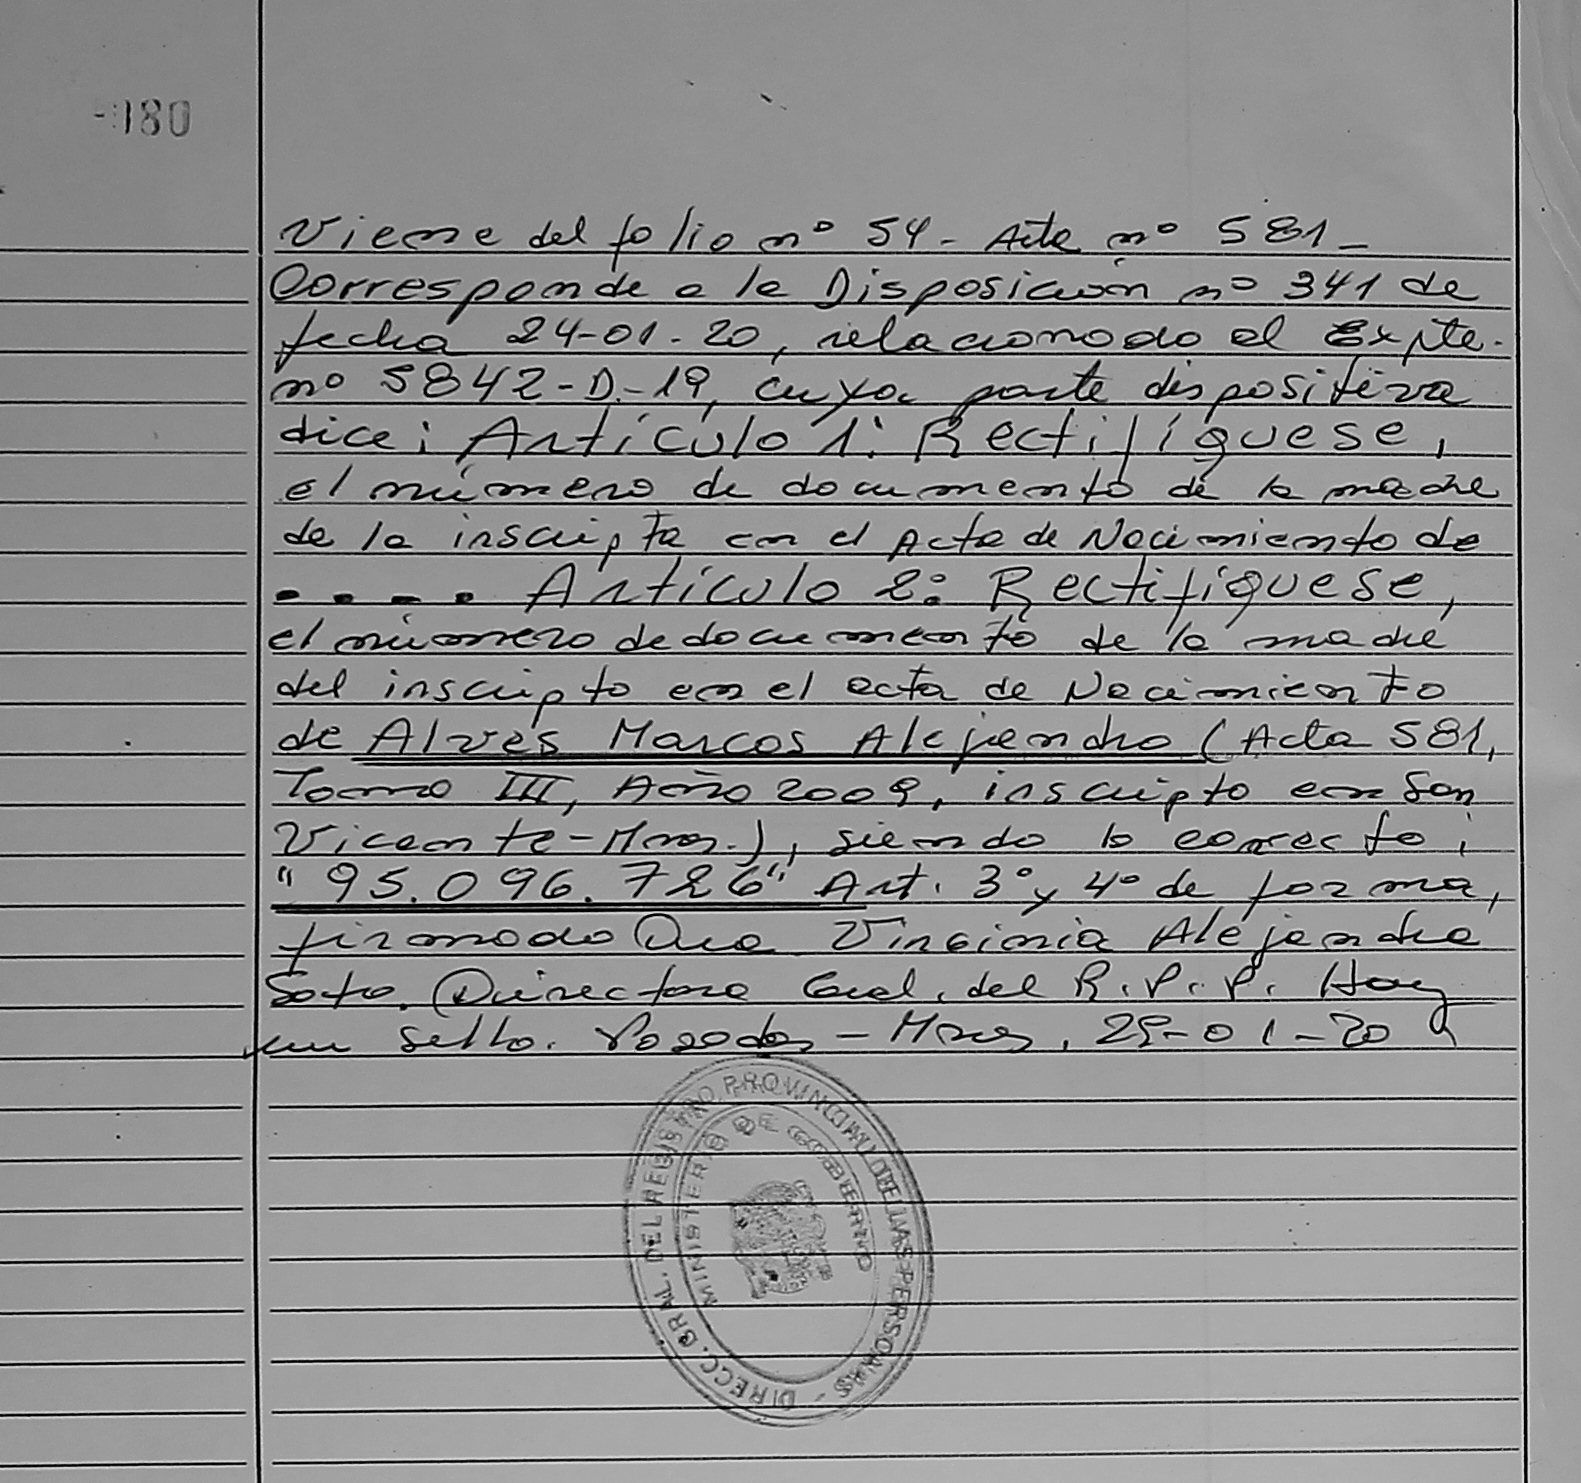 180
Viene del folio nº 54 - Acta nº 581 -
Corresponde a la Disposición nº 341 de
fecha 24-01-20, relacionado al Expte.
nº 5842-D-19, cuya parte dispositiva
dice: Artículo 1: Rectifíquese,
el número de documento de la madre
de la inscripta en el Acta de Nacimiento de
..... Artículo 2: Rectifíquese,
el número de documento de la madre
del inscripto en el acta de Nacimiento
de Alves Marcos Alejandro (Acta 581,
Tomo III, Año 2009, inscripto en San
Vicente-Mnes.), siendo lo correcto:
"95.096.726" Art. 3º y 4º de forma,
firmado Dra Virginia Alejandra
Soto. Directora Gral. del R.P.P. Hay
un sello. Posadas - Mnes, 29-01-20
DIRECC. GRAL. DEL REGISTRO PROVINCIAL DE LAS PERSONAS -
MINISTERIO DE GOBIERNO